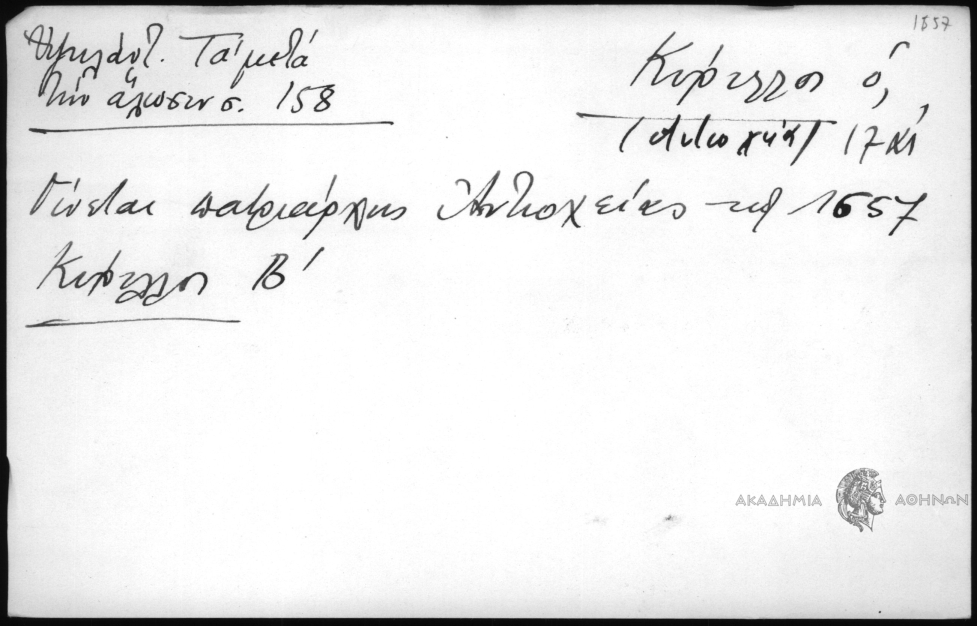 1857
Ὑψηλάντ. Τά μετά
τήν ἅλωσιν σ. 158
Κύριλλος ὁ,
(Ἀντιοχείας) 17 αἰ
Γίνεται πατριάρχης Ἀντιοχείας τῷ 1657
Κύριλλος Β'
ΑΚΑΔΗΜΙΑ ΑΘΗΝΩΝ